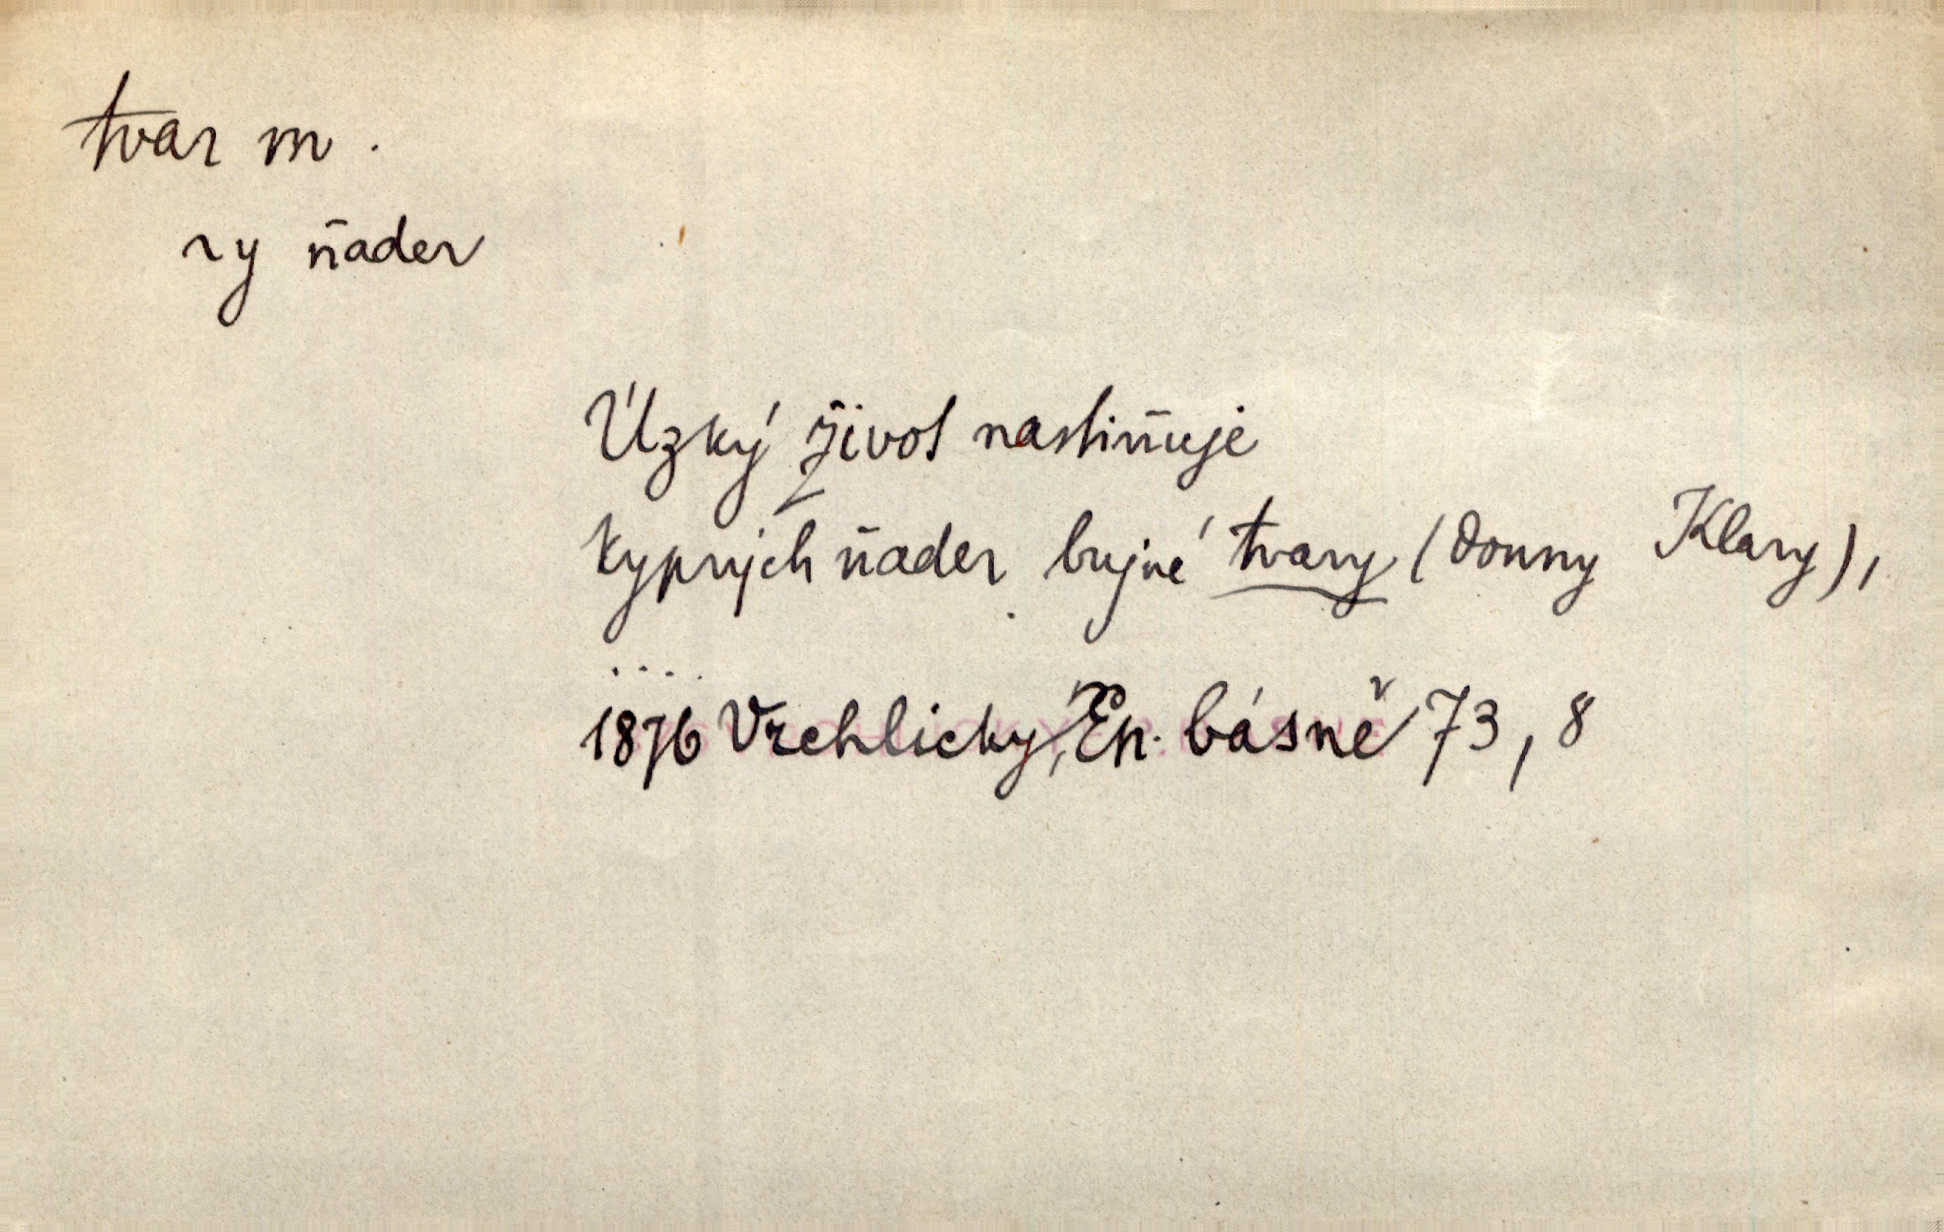 tvar m.
ry ňader
Úzký život nastiňuje
kyprých ňader bujné tvary (donny Klary),
....
1876 Vrchlický, Ep. básně 73, 8